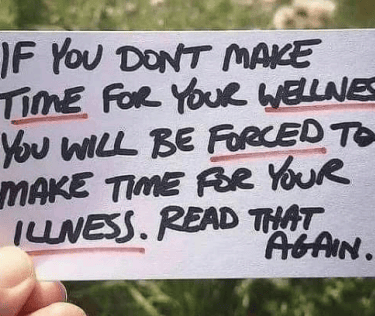 IF YOU DONT MAKE
TIME FOR YOUR WELLNES
YOU WILL BE FORCED TO
MAKE TIME FOR YOUR
ILLNESS. READ THAT
AGAIN.